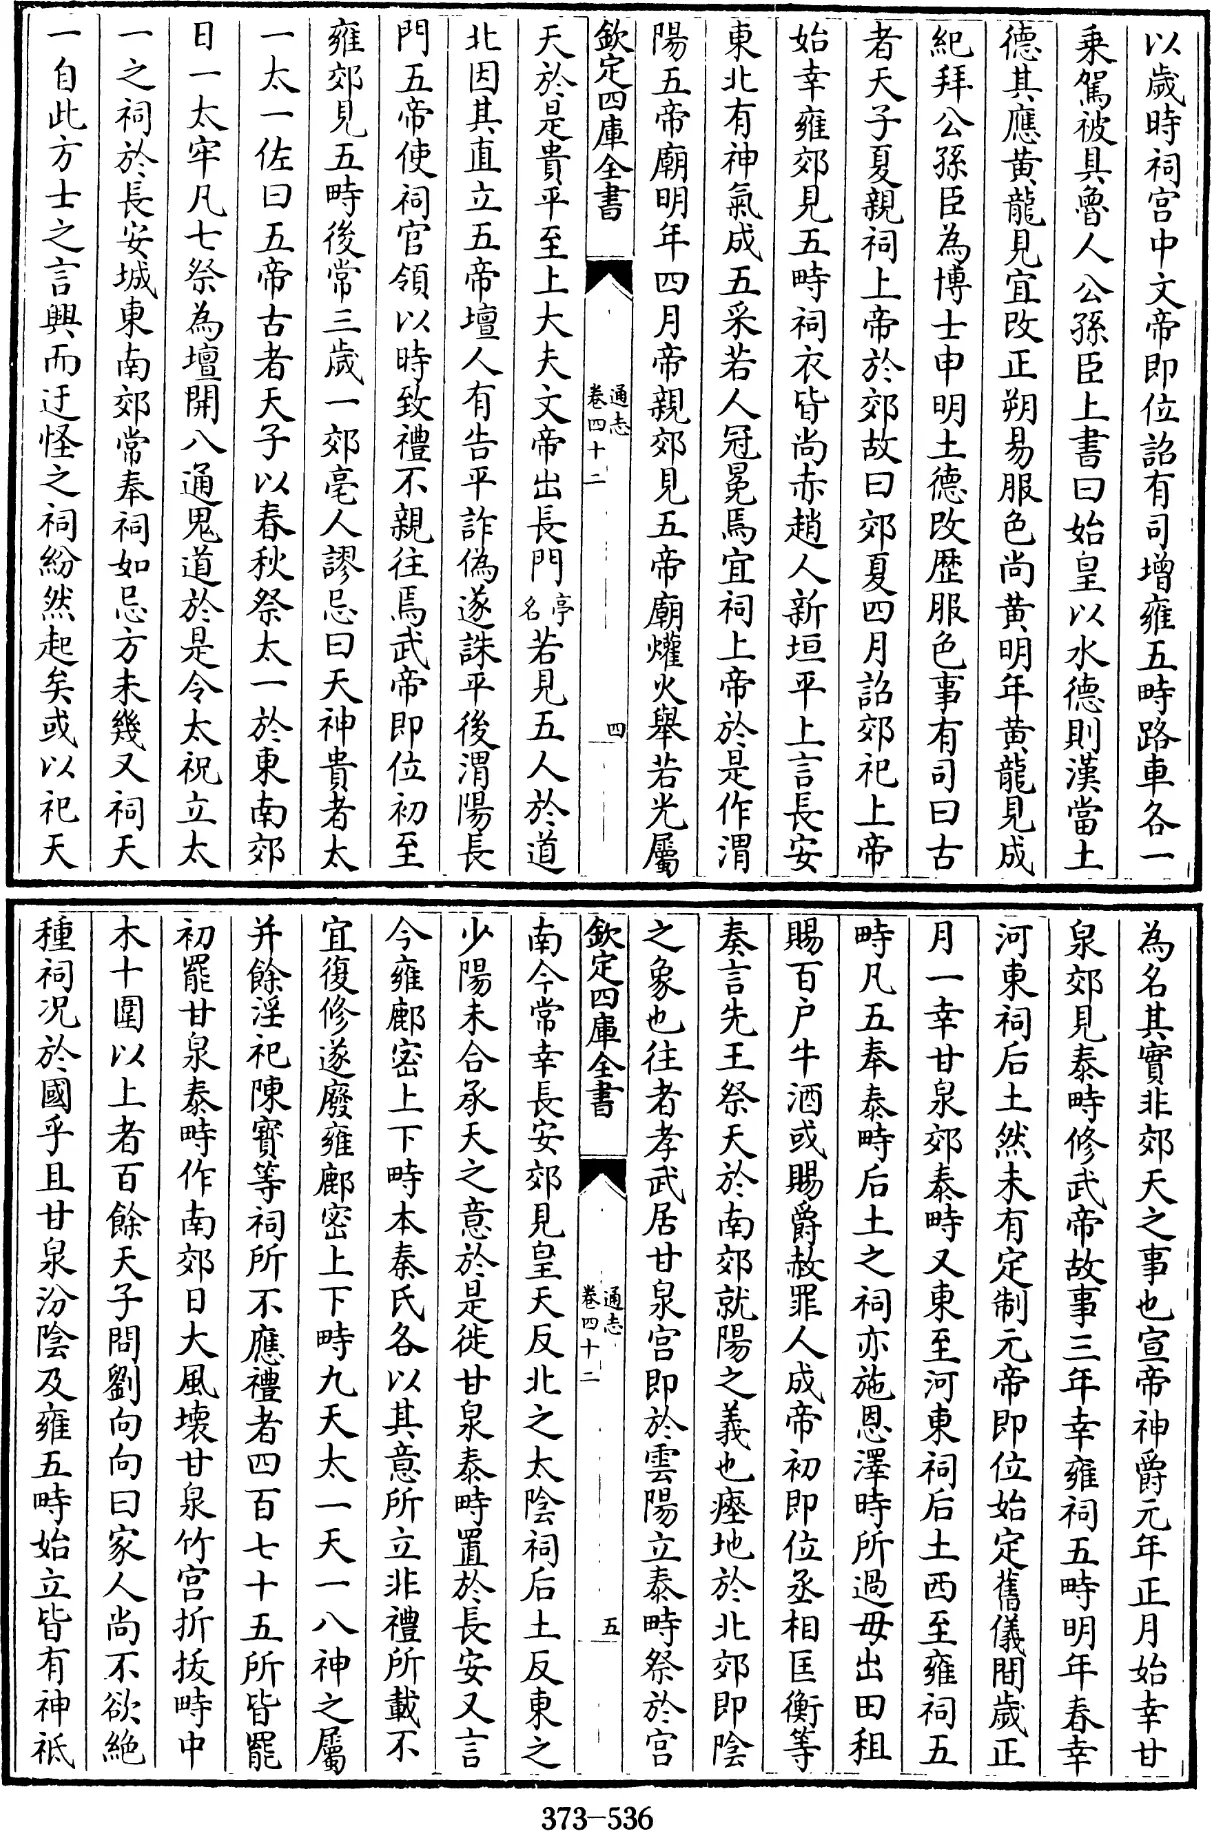 以歲時祠宫中文帝即位詔有司增雍五畤路車各一
乗駕被具魯人公孫臣上書曰始皇以水德則漢當土
德其應黄龍見宜改正朔易服色尚黄明年黄龍見成
紀拜公孫臣為博士申明土德改歴服色事有司曰古
者天子夏親祠上帝於郊故曰郊夏四月詔郊祀上帝
始幸雍郊見五畤祠衣皆尚赤趙人新垣平上言長安
東北有神氣成五采若人冠冕焉宜祠上帝於是作渭
陽五帝廟明年四月帝親郊見五帝廟爟火舉若光屬
欽定四庫全書
通志
卷四十二
四
天於是貴平至上大夫文帝出長門亭名若見五人於道
北因其直立五帝壇人有告平詐偽遂誅平後渭陽長
門五帝使祠官領以時致禮不親往焉武帝即位初至
雍郊見五畤後常三歲一郊亳人謬忌曰天神貴者太
一太一佐曰五帝古者天子以春秋祭太一於東南郊
日一太牢凡七祭為壇開八通鬼道於是令太祝立太
一之祠於長安城東南郊常奉祠如忌方未幾又祠天
一自此方士之言興而迂怪之祠紛然起矣或以祀天
為名其實非郊天之事也宣帝神爵元年正月始幸甘
泉郊見泰畤修武帝故事三年幸雍祠五畤明年春幸
河東祠后土然未有定制元帝即位始定舊儀間歲正
月一幸甘泉郊泰畤又東至河東祠后土西至雍祠五
畤凡五奉泰畤后土之祠亦施恩澤時所過毋出田租
賜百户牛酒或賜爵赦罪人成帝初即位丞相匡衡等
奏言先王祭天於南郊就陽之義也瘞地於北郊即陰
之象也往者孝武居甘泉宫即於雲陽立泰畤祭於宫
欽定四庫全書
通志
卷四十二
五
南今常幸長安郊見皇天反北之太陰祠后土反東之
少陽未合承天之意於是徙甘泉泰畤置於長安又言
今雍鄜密上下畤本秦氏各以其意所立非禮所載不
宜復修遂廢雍鄜密上下畤九天太一天一八神之屬
并餘淫祀陳寳等祠所不應禮者四百七十五所皆罷
初罷甘泉泰畤作南郊日大風壊甘泉竹宫折拔畤中
木十圍以上者百餘天子問劉向向曰家人尚不欲絶
種祠况於國乎且甘泉汾陰及雍五畤始立皆有神祗
373-536